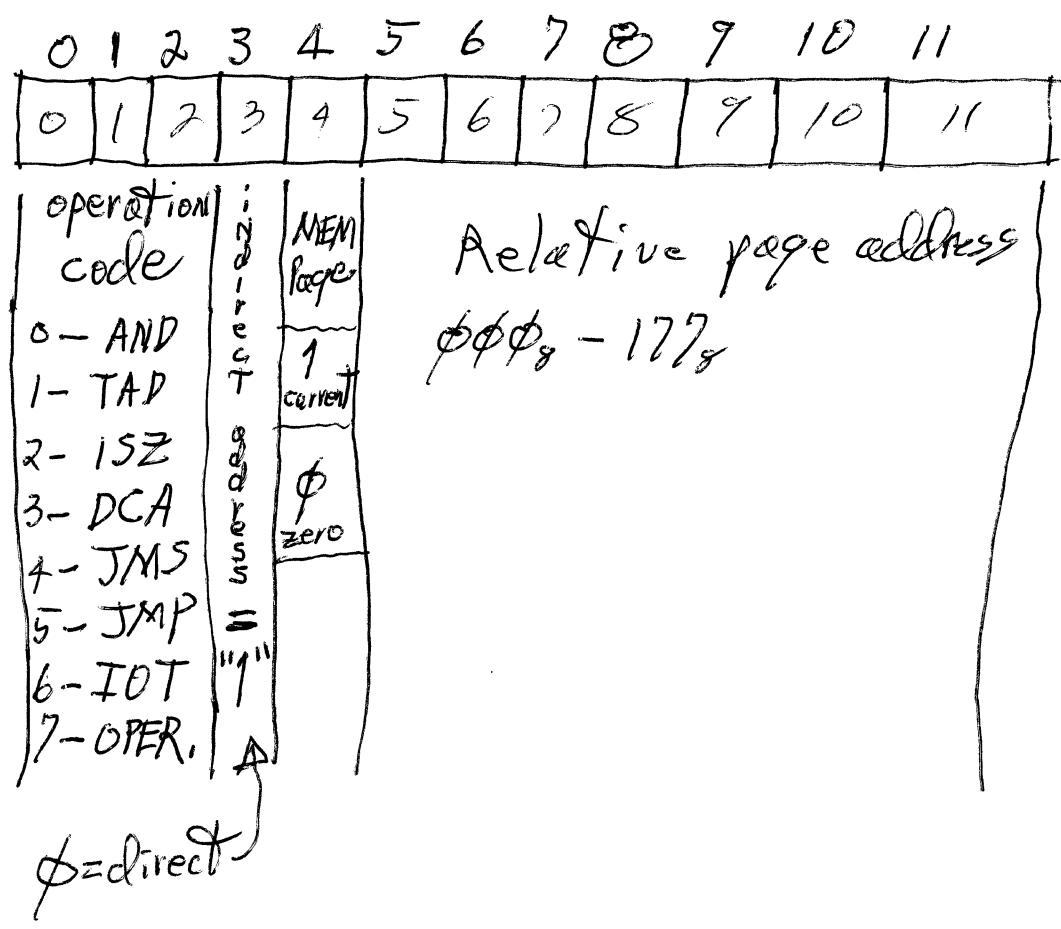 0 1 2 3 4 5 6 7 8 9 10 11
0 1 2 3 4 5 6 7 8 9 10 11
operation
code
0- AND
1- TAD
2- ISZ
3- DCA
4- JMS
5- JMP
6- IOT
7- OPER.
indirect address = "1"
φ=direct
MEM
Page
1
current
φ
zero
Relative page address
φφφ₈ - 177₈